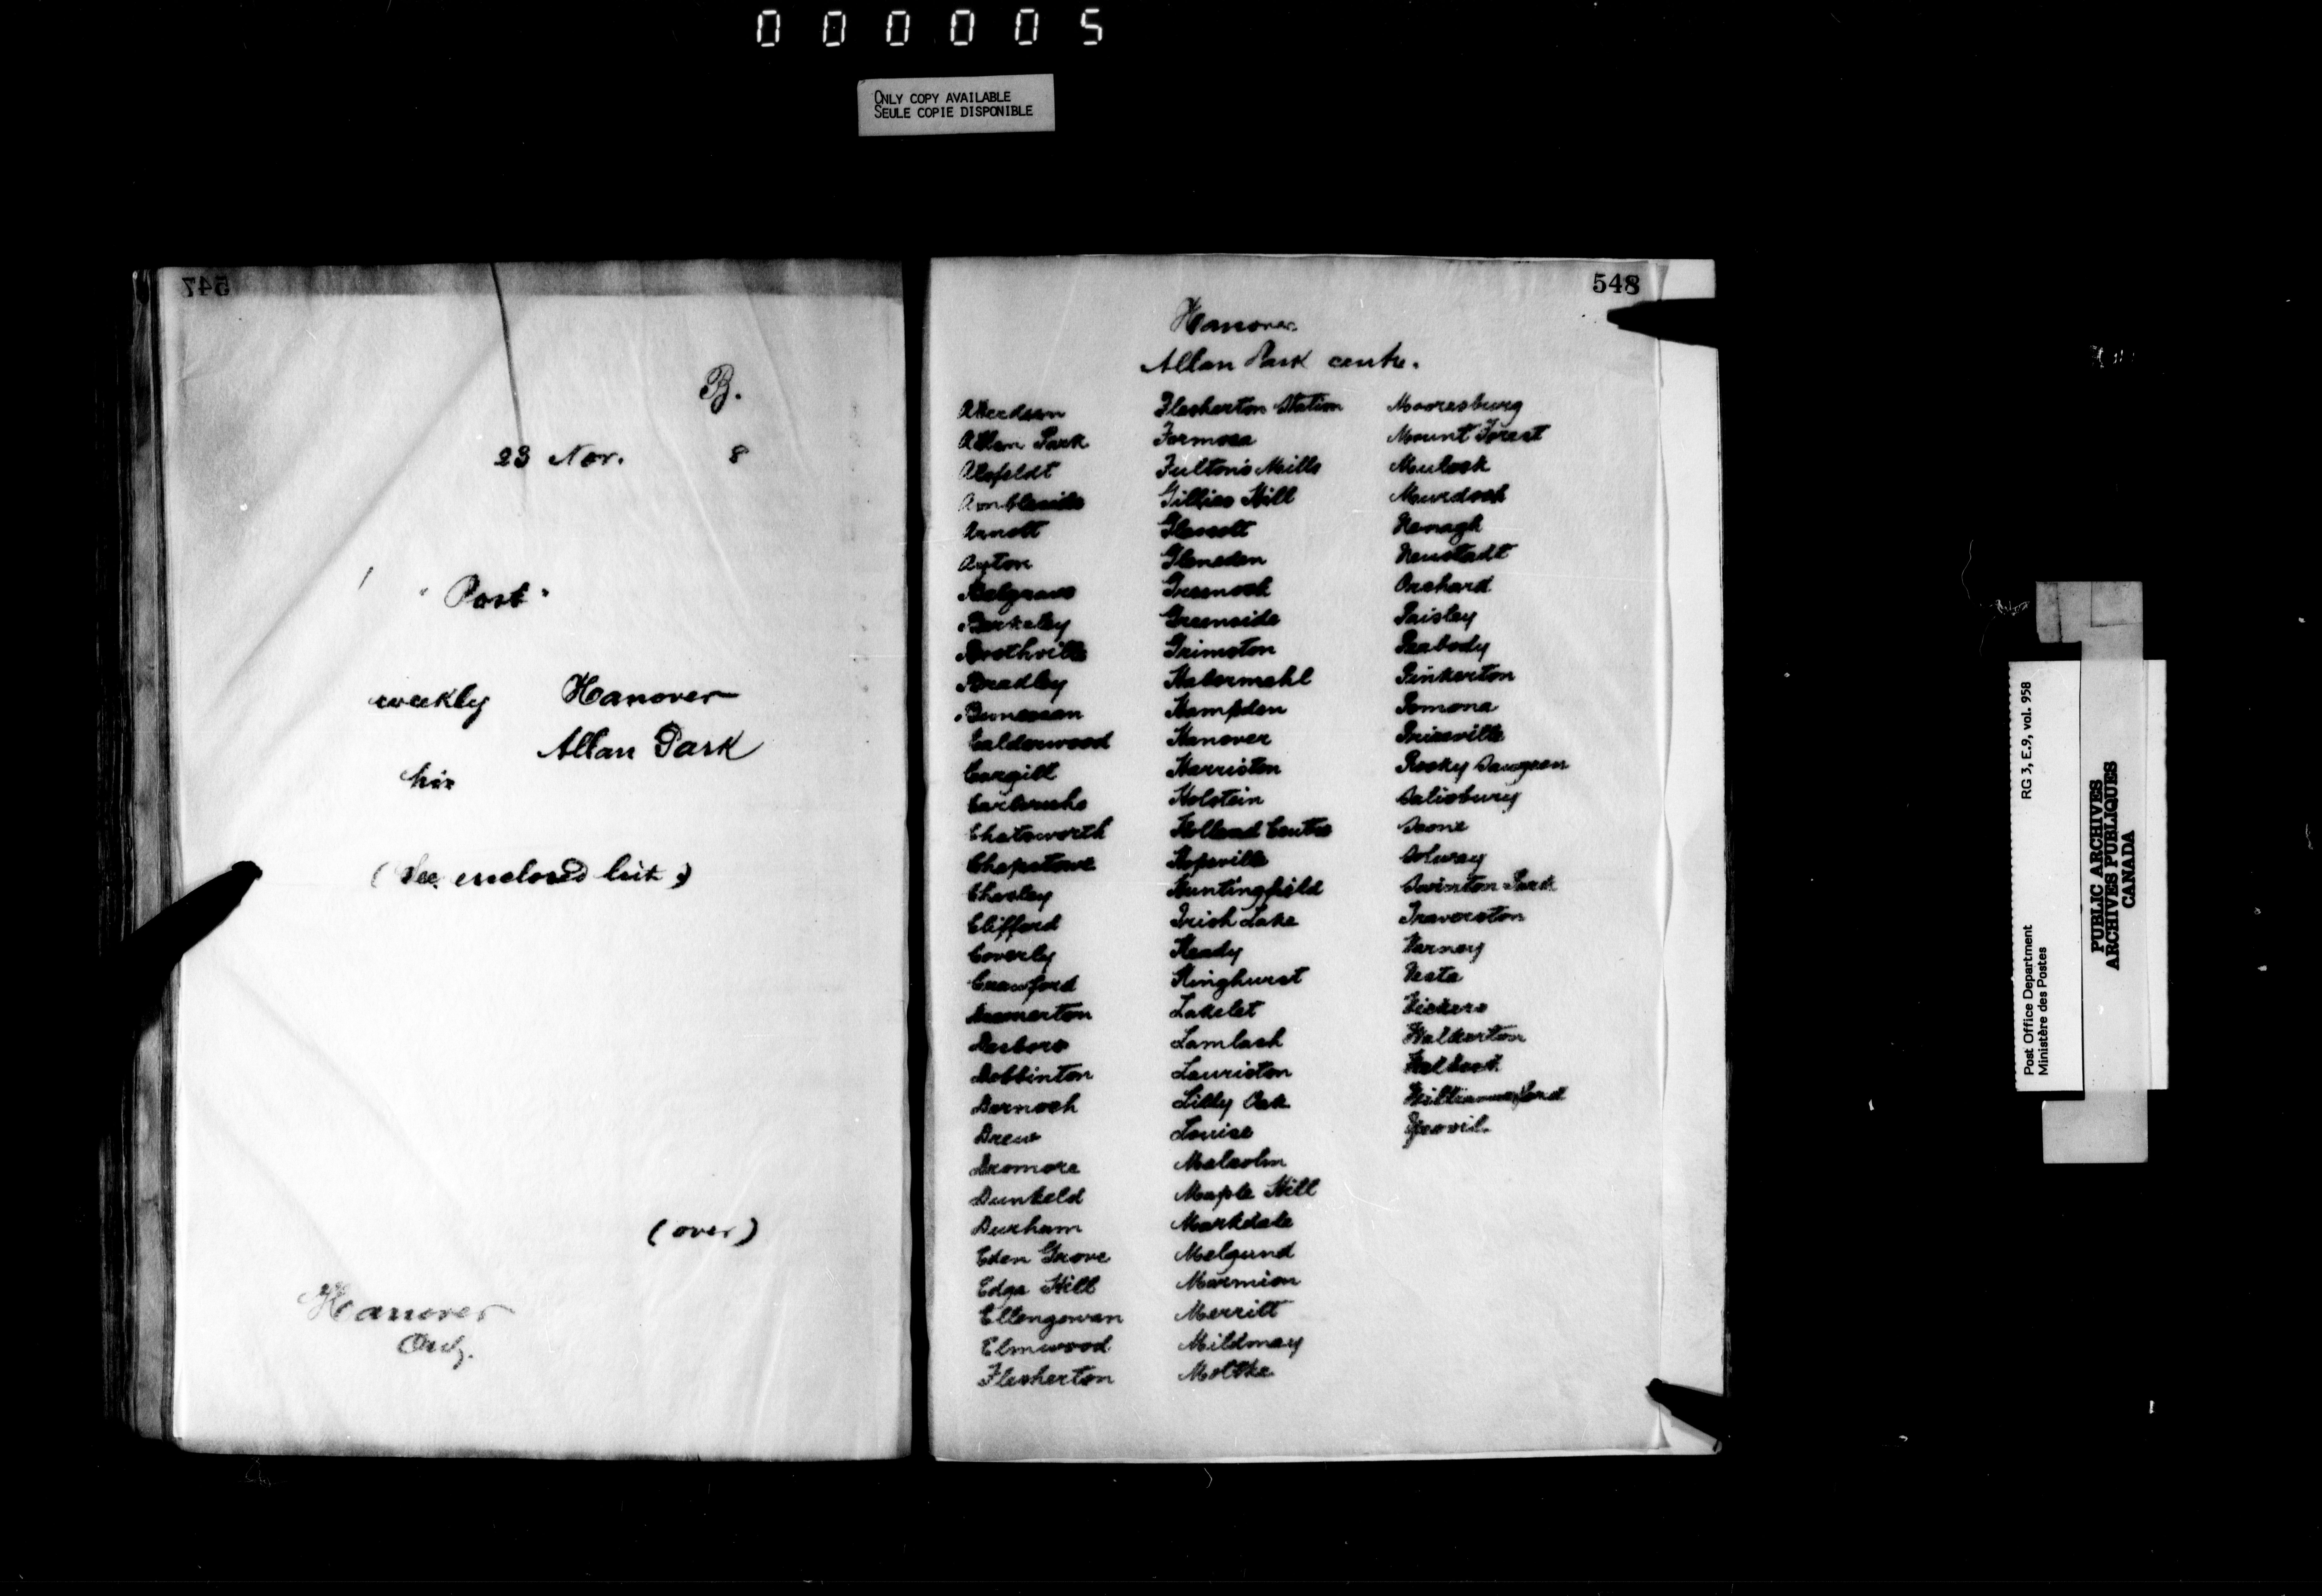 000005
ONLY COPY AVAILABLE
SEULE COPIE DISPONIBLE
547
B.
23 Nov. 8
"Post"
weekly Hanover
Allan Park
his
(See enclosed list)
(over)
Hanover
Ont.
548
Hanover
Allan Park centre.
Aberdeen
Allan Park
Alsfeldt
Ambleside
Arnott
Ayton
Belgrave
Berkeley
Boothville
Bradley
Bunessan
Calderwood
Cargill
Carlsruhe
Chatsworth
Chepstowe
Chesley
Clifford
Coverly
Crawford
Desboro
Dobbinton
Dornoch
Drew
Dromore
Dunkeld
Durham
Eden Grove
Edge Hill
Ellengowan
Elmwood
Flesherton
Flesherton Station
Formosa
Fulton's Mills
Gillies Hill
Glascott
Gleneden
Greenock
Greenside
Grimston
Habermehl
Hampden
Hanover
Harriston
Holstein
Holland Centre
Hopeville
Huntingfield
Irish Lake
Keady
Kinghurst
Lakelet
Lamlash
Lauriston
Lilly Oak
Louise
Malcolm
Maple Hill
Markdale
Melgund
Marmion
Merritt
Mildmay
Moltke
Mooresburg
Mount Forest
Mulock
Murdoch
Nenagh
Neustadt
Orchard
Paisley
Peabody
Pinkerton
Pomona
Priceville
Rocky Saugeen
Salisbury
Scone
Solway
Swinton Park
Traverston
Varney
Vesta
Vickers
Walkerton
Williamsford
Yeovil.
Post Office Department RG 3, E.9, vol. 958
Ministère des Postes
PUBLIC ARCHIVES
ARCHIVES PUBLIQUES
CANADA